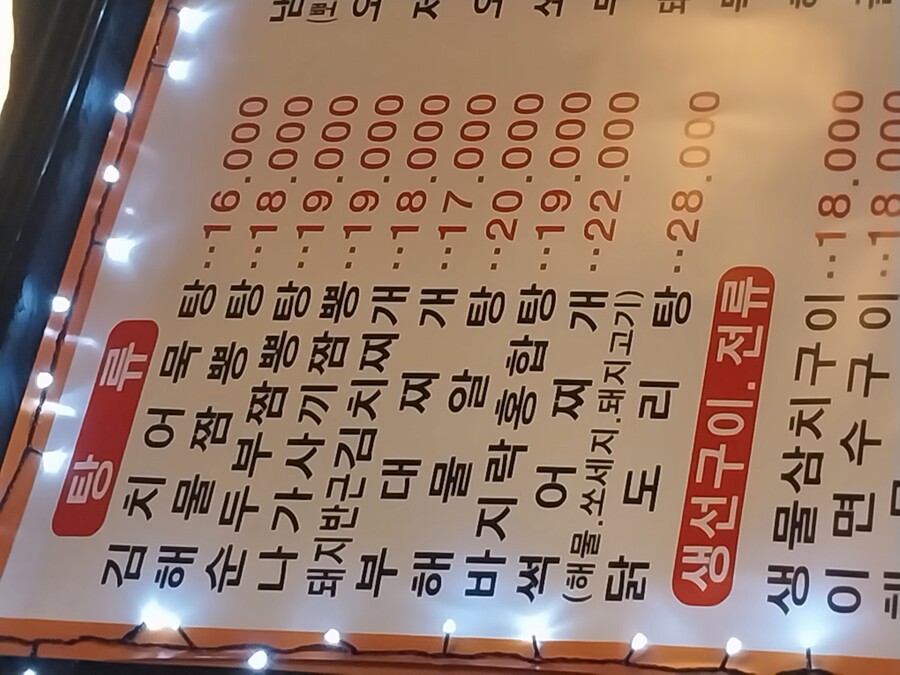 탕 류
김치어묵탕··16.000
해물짬뽕탕··18.000
순두부짬뽕탕··19.000
나가사끼짬뽕··19.000
돼지반근김치찌개··18.000
부대찌개··17.000
해물알탕··20.000
바지락홍합탕··19.000
썩어찌개··22.000
(해물.쏘세지.돼지고기)
닭도리탕··28.000
생선구이. 전류
생물삼치구이··18.000
이면수구이··18.000